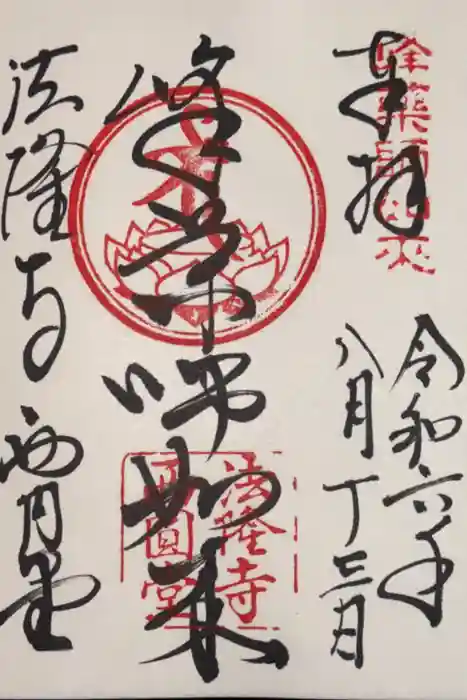 奉拝
薬師如来
令和六年
八月十三日
峯薬師如来
法隆寺
西圓堂
法隆寺 西円堂